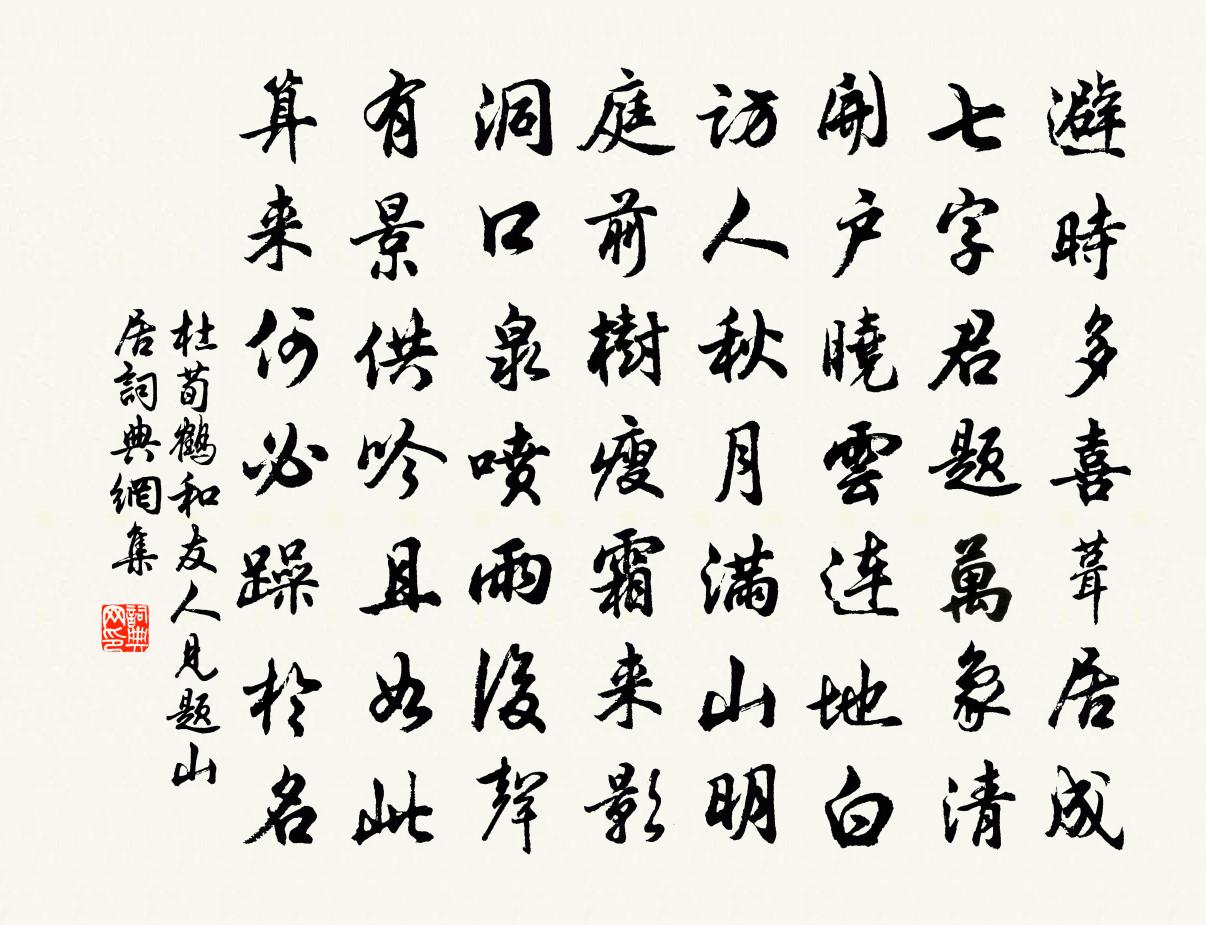 避時多喜葺居成
七字君題萬象清
開戶曉雲連地白
訪人秋月滿山明
庭前樹瘦霜来影
洞口泉噴雨後聲
有景供吟且如此
算来何必躁於名
杜荀鶴和友人見題山
居詞典網集
詞典网印